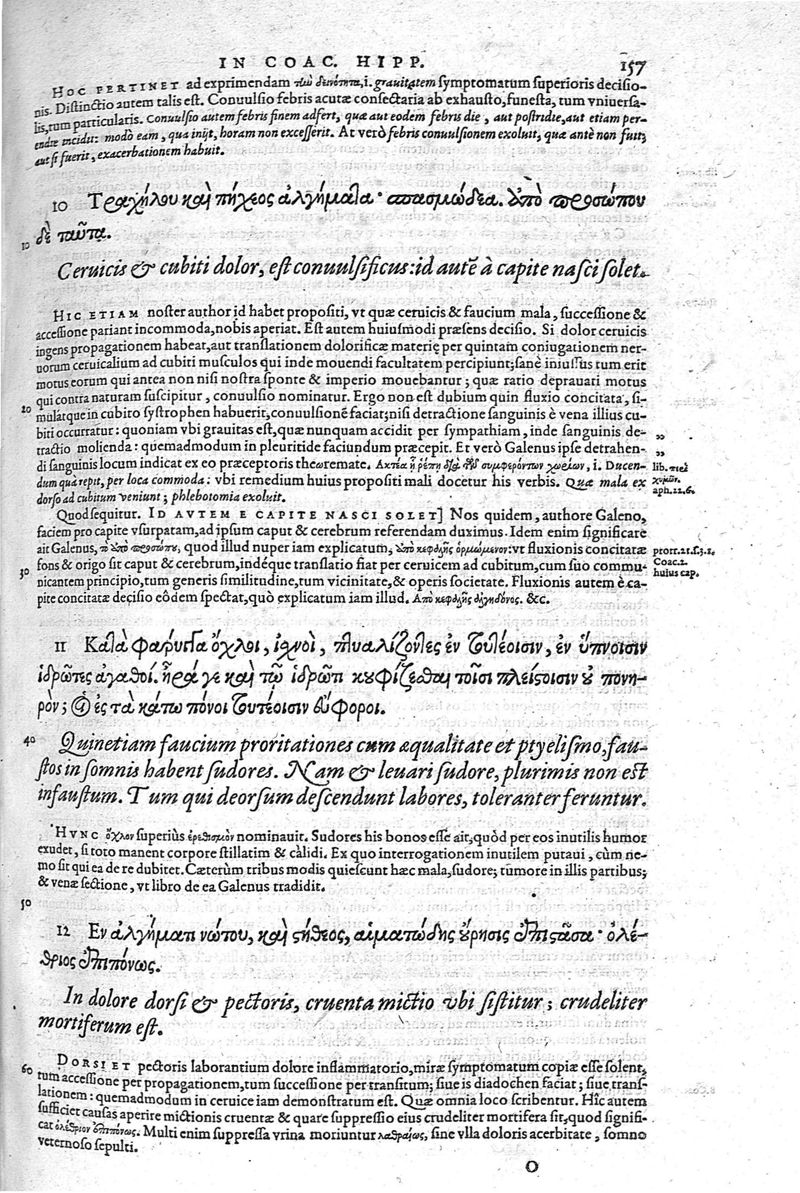 IN COAC. HIPP. 157
HOC PERTINET ad exprimendam τὴν δεινότητα, i. grauitatem symptomatum superioris decisio-
nis. Distinctio autem talis est. Conuulsio febris acutæ consectaria ab exhausto, funesta, tum vniuersa-
lis, tum particularis. Conuulsio autem febris finem adfert, quæ aut eodem febris die, aut postridie, aut etiam per-
endie incidit: modò eam, qua inijt, horam non excesserit. At verò febris conuulsionem exoluit, quæ antè non fuit;
aut si fuerit, exacerbationem habuit.
10 Τραχήλου καὶ πήχεος ἀλγήματα· σπασμώδεα. ἀπὸ προσώπου
10 δὲ ταῦτα.
Ceruicis & cubiti dolor, est conuulsificus: id autē à capite nasci solet.
HIC ETIAM noster author id habet propositi, vt quæ ceruicis & faucium mala, successione &
accessione pariant incommoda, nobis aperiat. Est autem huiusmodi præsens decisio. Si dolor ceruicis
ingens propagationem habeat, aut translationem dolorificæ materię per quintam coniugationem ner-
uorum ceruicalium ad cubiti musculos qui inde mouendi facultatem percipiunt; sanè iniussus tum erit
motus eorum qui antea non nisi nostra sponte & imperio mouebantur; quæ ratio deprauari motus
qui contra naturam suscipitur, conuulsio nominatur. Ergo non est dubium quin fluxio concitata, si-
20 mulátque in cubito systrophen habuerit, conuulsionē faciat; nisi detractione sanguinis è vena illius cu-
biti occurratur: quoniam vbi grauitas est, quæ nunquam accidit per sympathiam, inde sanguinis de-
tractio molienda: quemadmodum in pleuritide faciundum præcepit. Et verò Galenus ipse detrahen-
di sanguinis locum indicat ex eo præceptoris theoremate. Ἀκτέα ᾗ ῥέπῃ διὰ τῶν συμφερόντων χωρίων, i. Ducen-
dum quà repit, per loca commoda: vbi remedium huius propositi mali docetur his verbis. Quæ mala ex
dorso ad cubitum veniunt; phlebotomia exoluit.
„
„
lib. περὶ
χυμῶν.
aph. 22. 6.
Quod sequitur. ID AVTEM E CAPITE NASCI SOLET] Nos quidem, authore Galeno,
faciem pro capite vsurpatam, ad ipsum caput & cerebrum referendam duximus. Idem enim significare
ait Galenus, τὸ ἀπὸ προσώπου, quod illud nuper iam explicatum, ἀπὸ κεφαλῆς ὁρμώμενον: vt fluxionis concitatæ
fons & origo sit caput & cerebrum, indéque translatio fiat per ceruicem ad cubitum, cum suo commu-
30 nicantem principio, tum generis similitudine, tum vicinitate, & operis societate. Fluxionis autem è ca-
pite concitatæ decisio eôdem spectat, quò explicatum iam illud. Ἀπὸ κεφαλῆς ἀλγηδόνος. &c.
prorr. 21. s. 3. 1.
Coac. 2.
huius cap.
11 Κατὰ φάρυγγα ὄχλοι, ἰχνοὶ, πτυαλίζοντες ἐν τουτέοισιν, ἐν ὕπνοισιν
ἱδρῶτες ἀγαθοί. ἦρά γε καὶ τῷ ἱδρῶτι κουφίζεσθαι τοῖσι πλείστοισιν οὐ πονη-
ρόν; οἱ ἐς τὰ κάτω πόνοι τουτέοισιν εὔφοροι.
40 Quinetiam faucium proritationes cum æqualitate et ptyelismo, fau-
stos in somnis habent sudores. Nam & leuari sudore, plurimis non est
infaustum. Tum qui deorsum descendunt labores, toleranter feruntur.
HVNC ὄχλον superiùs ἐρεθισμὸν nominauit. Sudores his bonos esse ait, quòd per eos inutilis humor
exudet, si toto manent corpore stillatim & calidi. Ex quo interrogationem inutilem putaui, cùm ne-
mo sit qui ea de re dubitet. Cæterùm tribus modis quiescunt hæc mala, sudore; tumore in illis partibus;
& venæ sectione, vt libro de ea Galenus tradidit.
50
12 Ἐν ἀλγήματι νώτου, καὶ στήθεος, αἱματώδης οὔρησις ἐπιστᾶσα· ὀλέ-
θριος ἐπιπόνως.
In dolore dorsi & pectoris, cruenta mictio vbi sistitur; crudeliter
mortiferum est.
60 DORSI ET pectoris laborantium dolore inflammatorio, miræ symptomatum copiæ esse solent,
tum accessione per propagationem, tum successione per transitum; siue is diadochen faciat; siue trans-
lationem: quemadmodum in ceruice iam demonstratum est. Quæ omnia loco scribentur. Hîc autem
sufficiet causas aperire mictionis cruentæ & quare suppressio eius crudeliter mortifera sit, quod signifi-
cat ὀλέθριον ἐπιπόνως. Multi enim suppressa vrina moriuntur λαθραίως, sine vlla doloris acerbitate, somno
veternoso sepulti.
O